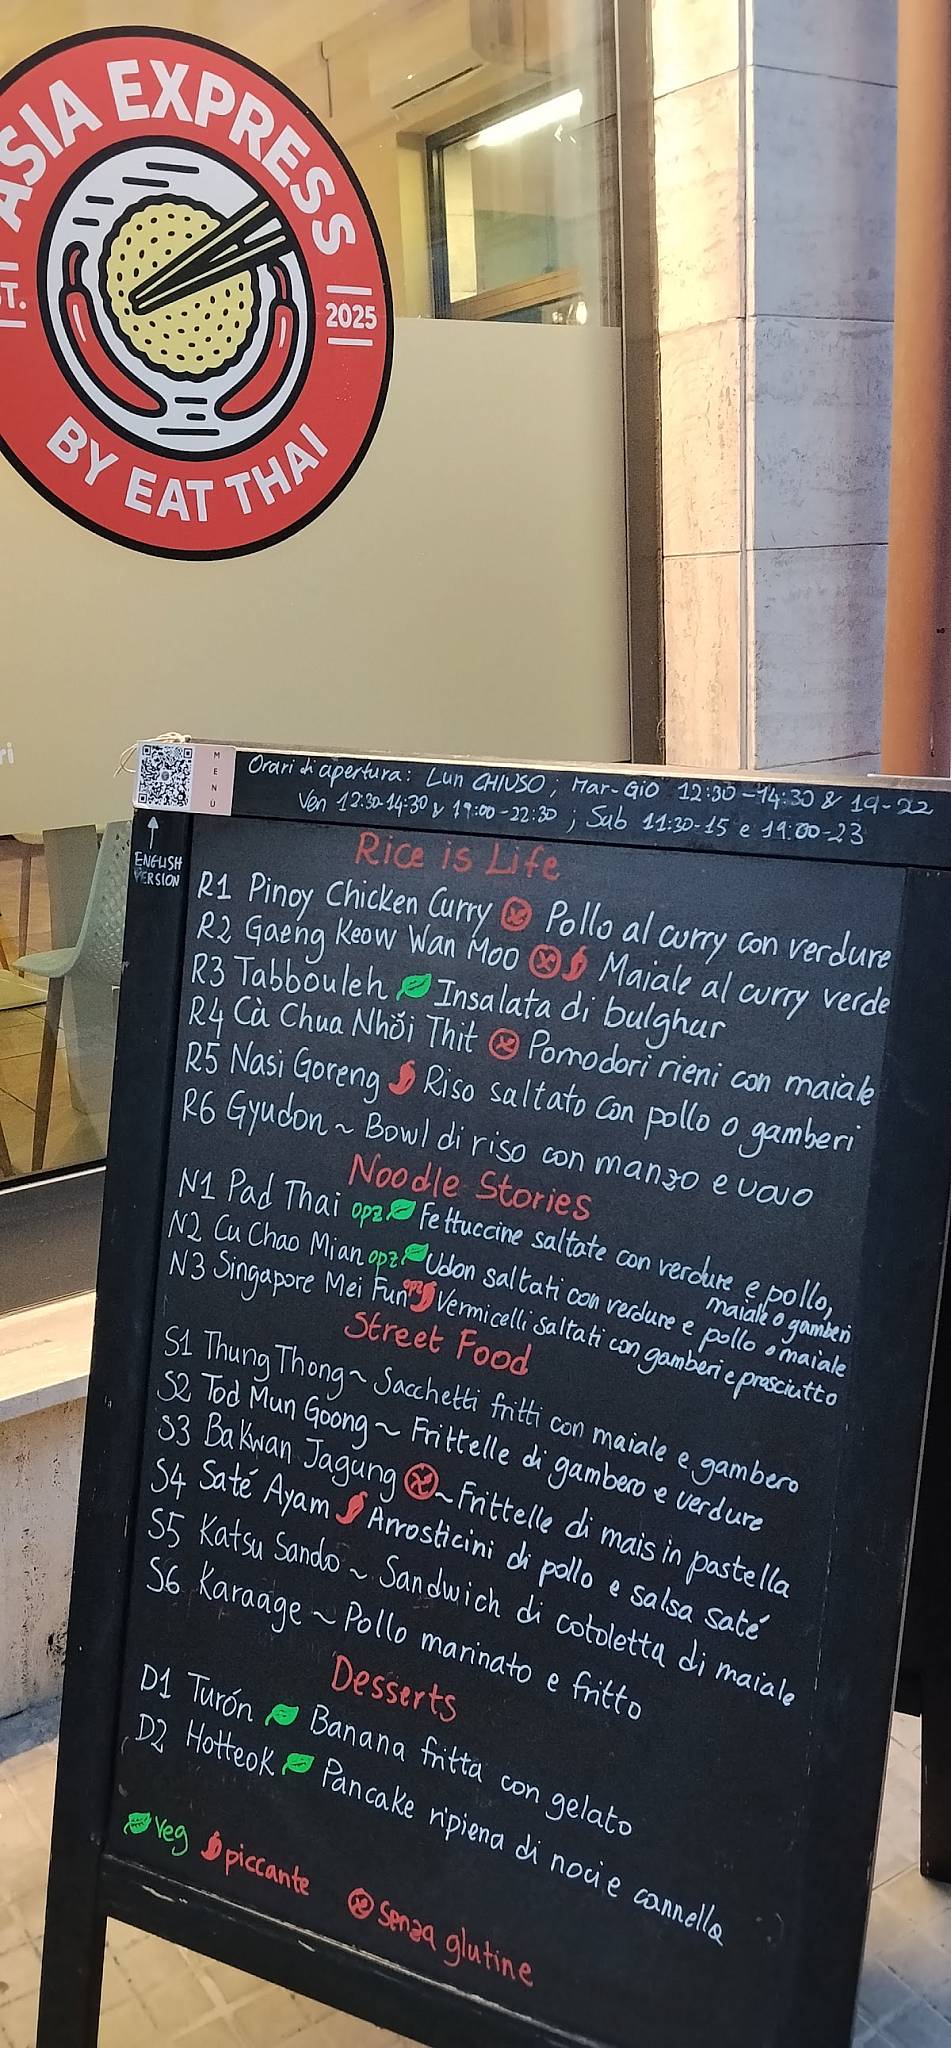 ASIA EXPRESS
ST.
2025
BY EAT THAI
ri
MENÙ
ENGLISH
VERSION
Orari di apertura: Lun CHIUSO; Mar-Gio 12:30-14:30 & 19-22
Ven 12:30-14:30 & 19:00-22:30 ; Sab 11:30-15 e 19:00-23
Rice is Life
R1 Pinoy Chicken Curry Pollo al curry con verdure
R2 Gaeng Keow Wan Moo Maiale al curry verde
R3 Tabbouleh Insalata di bulghur
R4 Cà Chua Nhồi Thit Pomodori rieni con maiale
R5 Nasi Goreng Riso saltato con pollo o gamberi
R6 Gyudon ~ Bowl di riso con manzo e uovo
Noodle Stories
N1 Pad Thai opz Fettuccine saltate con verdure e pollo,
maiale o gamberi
N2 Cu Chao Mian opz Udon saltati con verdure e pollo o maiale
N3 Singapore Mei Fun opz Vermicelli saltati con gamberi e prosciutto
Street Food
S1 Thung Thong ~ Sacchetti fritti con maiale e gambero
S2 Tod Mun Goong ~ Frittelle di gambero e verdure
S3 Bakwan Jagung ~ Frittelle di mais in pastella
S4 Saté Ayam Arrosticini di pollo e salsa saté
S5 Katsu Sando ~ Sandwich di cotoletta di maiale
S6 Karaage ~ Pollo marinato e fritto
Desserts
D1 Turón Banana fritta con gelato
D2 Hotteok Pancake ripiena di noci e cannella
veg piccante senza glutine